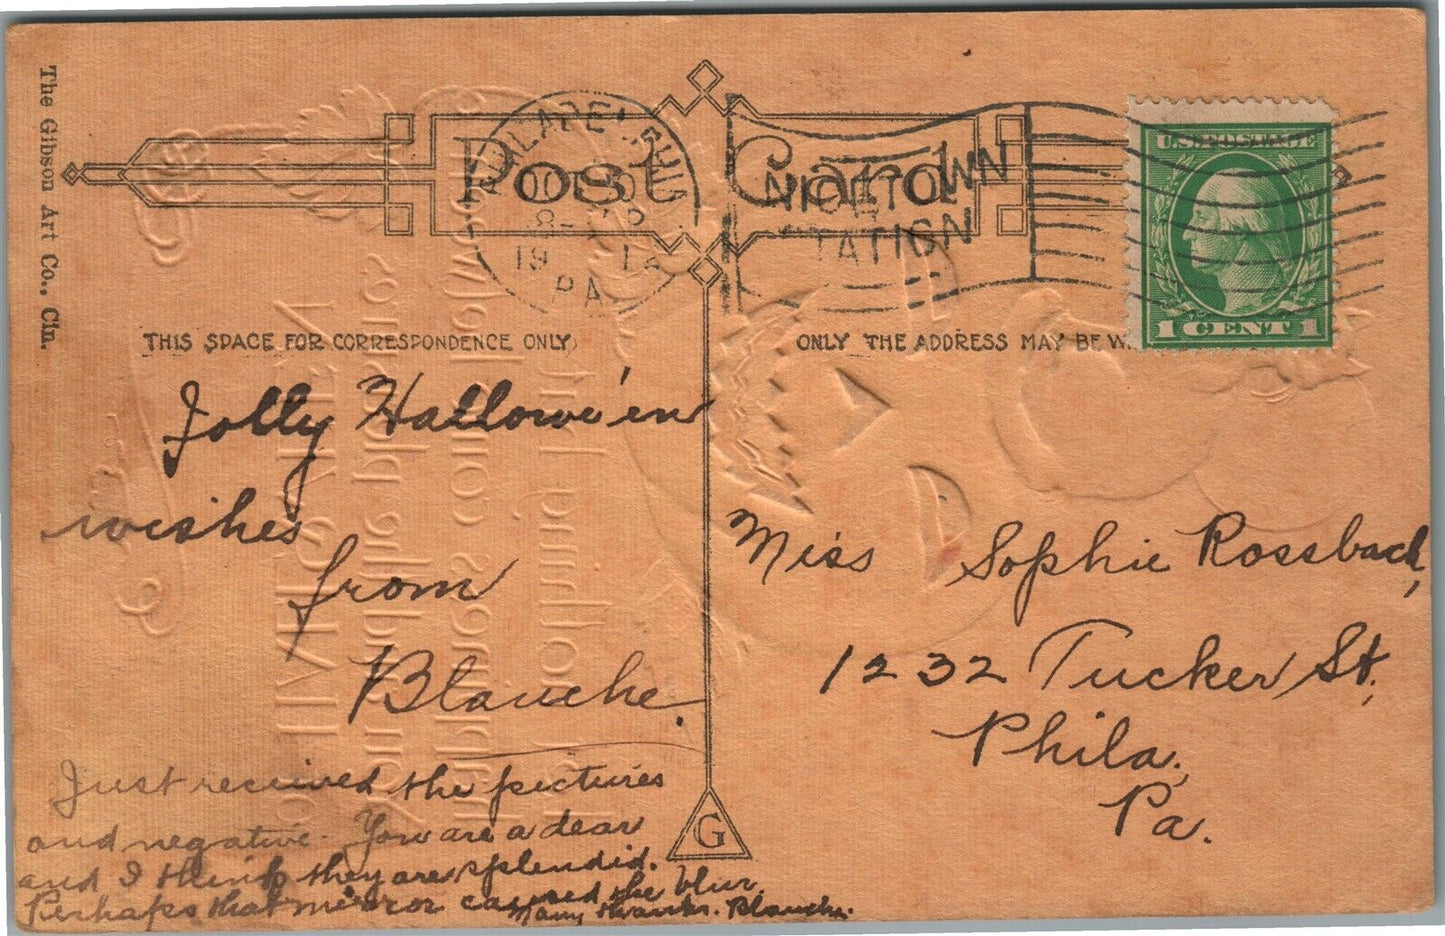 The Gibson Art Co., Cin.
Post Card
PHILADELPHIA
PA
NICETOWN
STATION
U.S. POSTAGE
1 CENT 1
THIS SPACE FOR CORRESPONDENCE ONLY
ONLY THE ADDRESS MAY BE
Jolly Hallowe'en
wishes
from
Blanche.
Just received the pictures
and negative. You are a dear
and I think they are splendid.
Perhaps that mirror caused the blur.
Many thanks. Blanche.
Miss Sophie Rossbach,
1232 Tucker St,
Phila,
Pa.
G